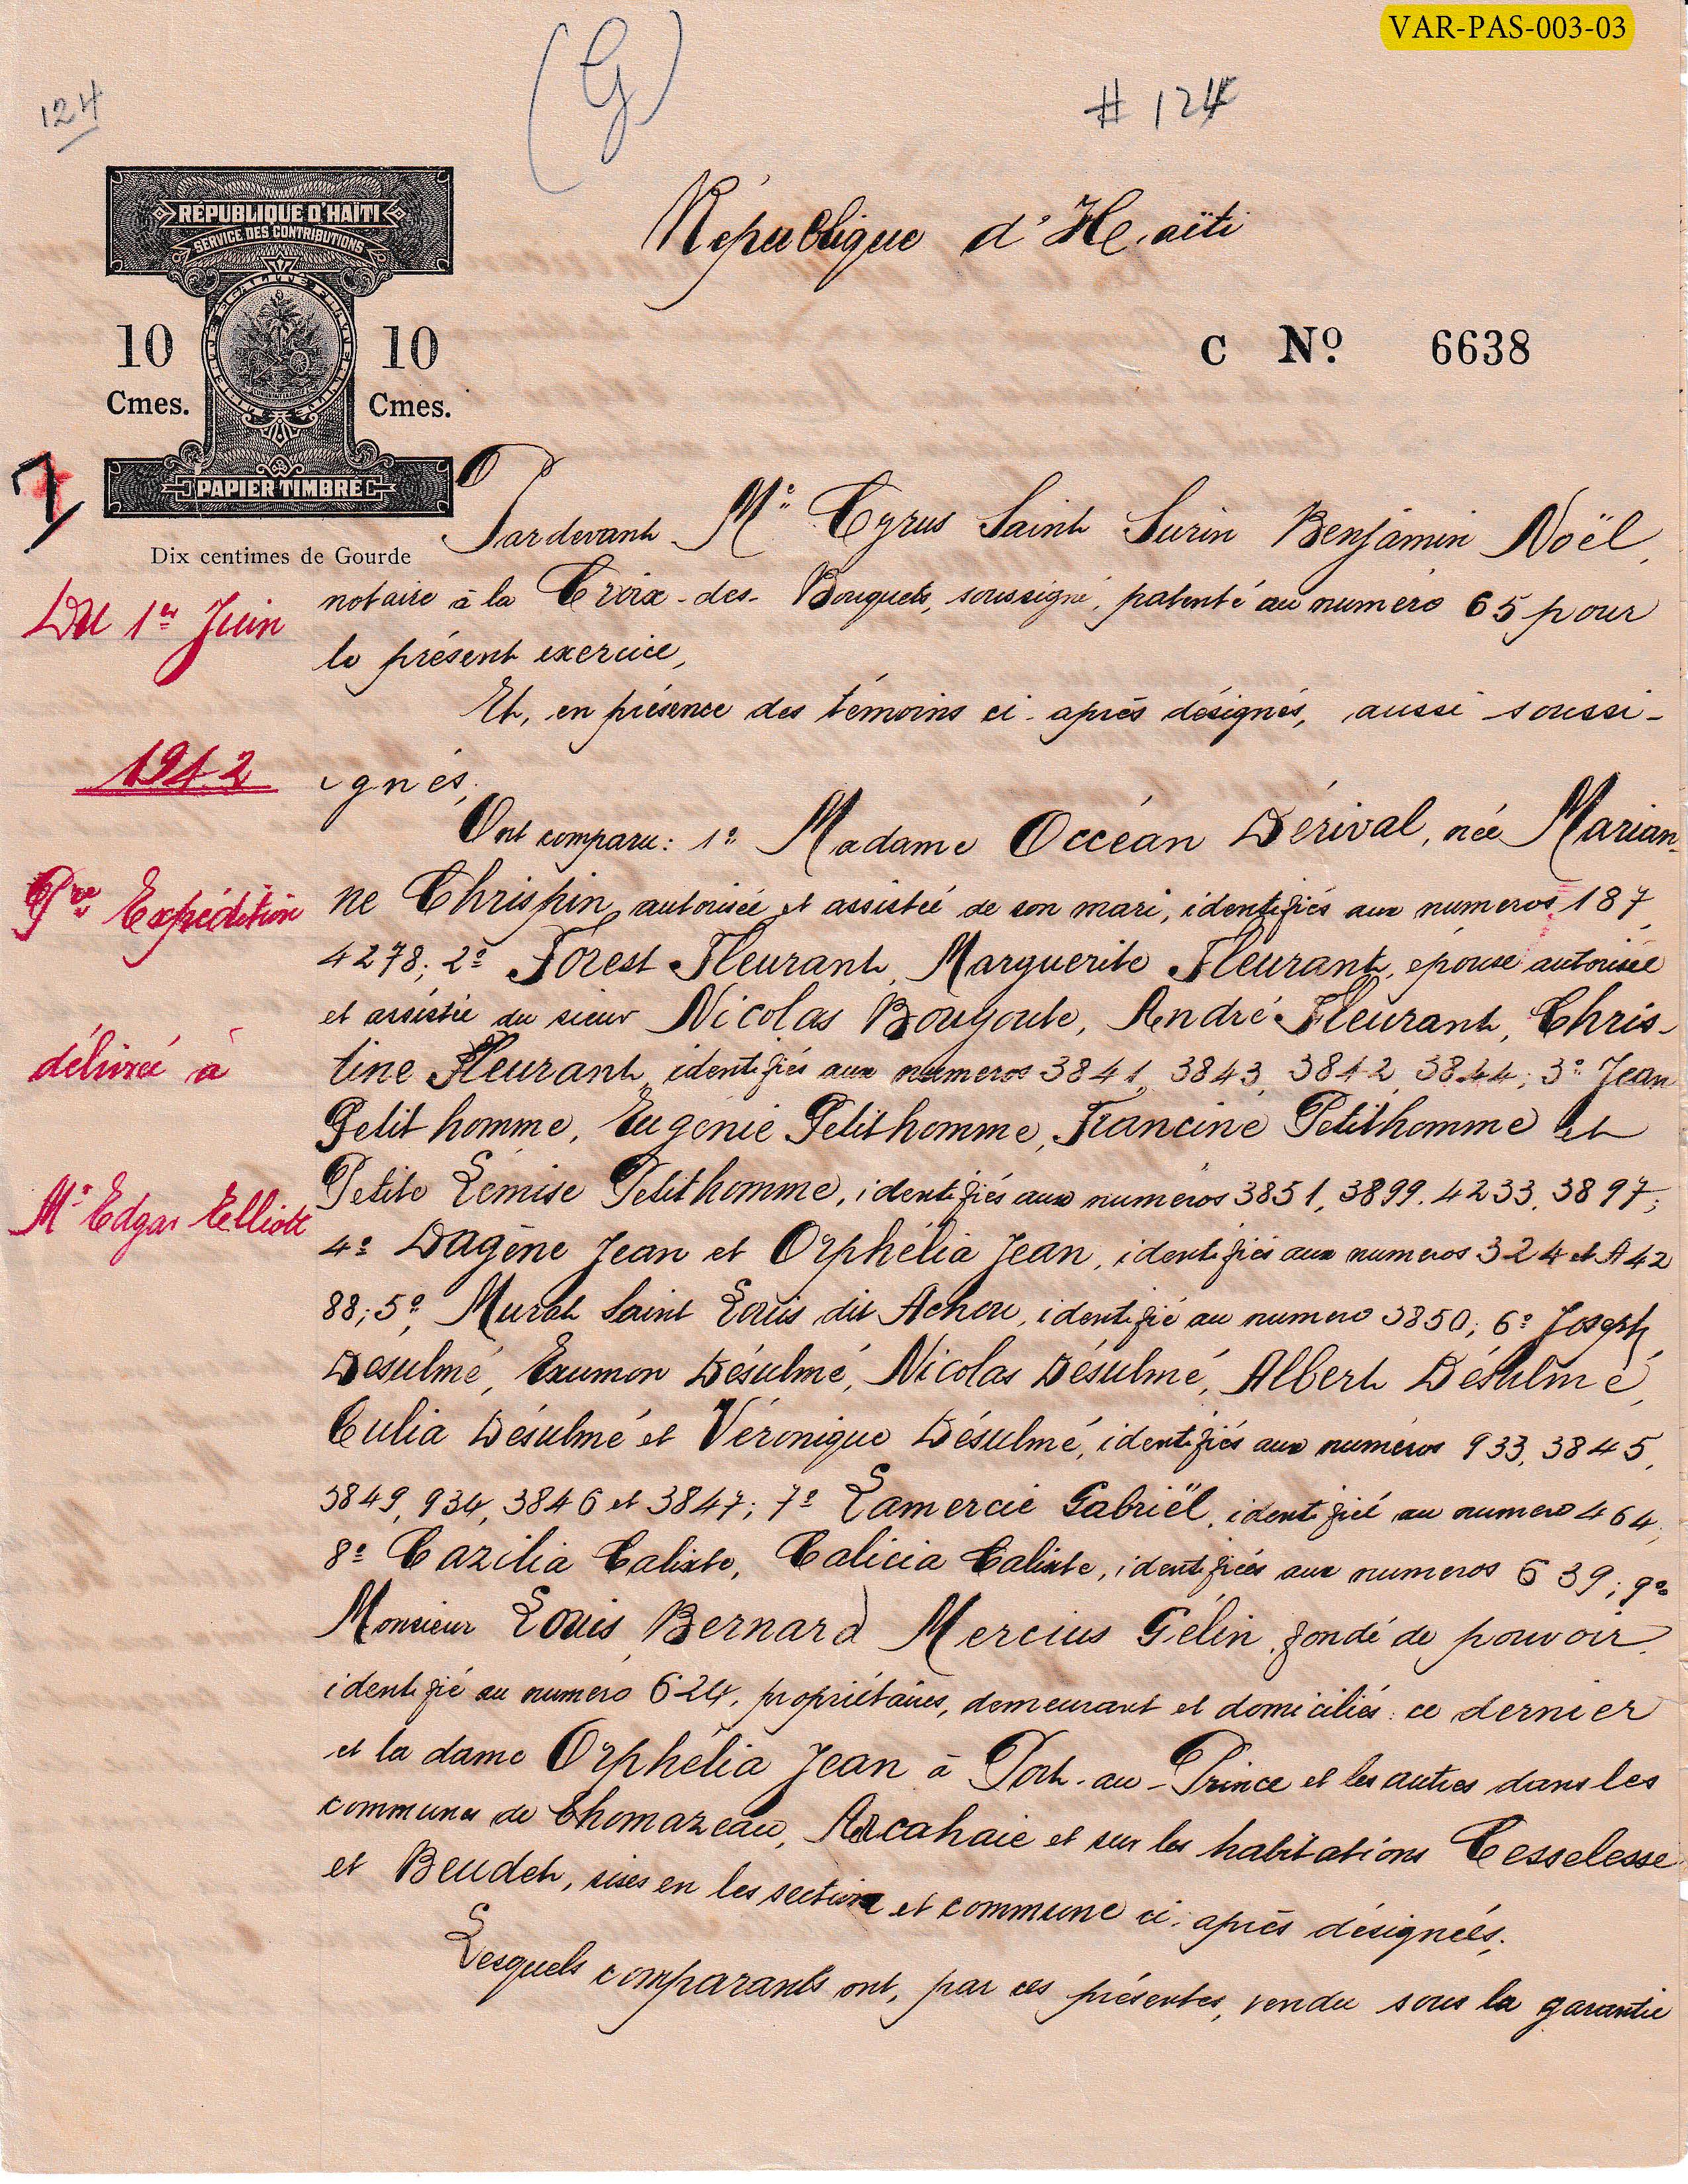 VAR-PAS-003-03
124
(G)
# 124
RÉPUBLIQUE D'HAÏTI
SERVICE DES CONTRIBUTIONS
République d'Haïti
10 10
Cmes. Cmes.
C Nº 6638
PAPIER TIMBRÉ
Dix centimes de Gourde
7
Pardevant Me Cyrus Saint Surin Benjamin Noël,
notaire à la Croix-des-Bouquets, soussigné, patenté au numéro 65 pour
le présent exercice,
Et, en présence des témoins ci-après désignés, aussi soussi-
gnés,
Ont comparu: 1º Madame Occéan Dérival, née Marian-
ne Chrispin, autorisée et assistée de son mari, identifiés aux numeros 187,
4278; 2º Forest Fleurant, Marguerite Fleurant, épouse autorisée
et assistée du sieur Nicolas Bougoute, André Fleurant, Chris-
tine Fleurant, identifiés aux numeros 3841, 3843, 3842, 3844; 3º Jean
Petit homme, Eugénie Petit homme, Francine Petithomme et
Petite Lémise Petit homme, identifiés aux numéros 3851, 3899. 4233, 3897;
4º Dagène Jean et Orphélia Jean, identifiés aux numeros 324 et A42
88; 5º, Murat Saint Louis dit Achou, identifié au numero 3850; 6º Joseph
Désulmé, Exumon Désulmé, Nicolas Désulmé, Albert Désulmé,
Culia Désulmé et Véronique Désulmé, identifiés aux numéros 933, 3845,
3849, 934, 3846 et 3847; 7º Lamercie Gabriël, identifié au numero 464;
8º Cazilia Calixte, Calicia Calixte, identifiées aux numeros 639; 9º
Monsieur Louis Bernard Mercius Gélin, fondé de pouvoir,
identifié au numéro 624, propriétaires, demeurant et domiciliés: ce dernier
et la dame Orphélia Jean à Port-au-Prince et les autres dans les
communes de Thomazeau, Arcahaie et sur les habitations Cesselesse
et Beudet, sises en les section et commune ci-après désignées,
Lesquels comparants ont, par ces présentes, vendu sous la garantie
Du 1er Juin
1942
Pre Expédition
délivrée à
Me Edgar Elliott